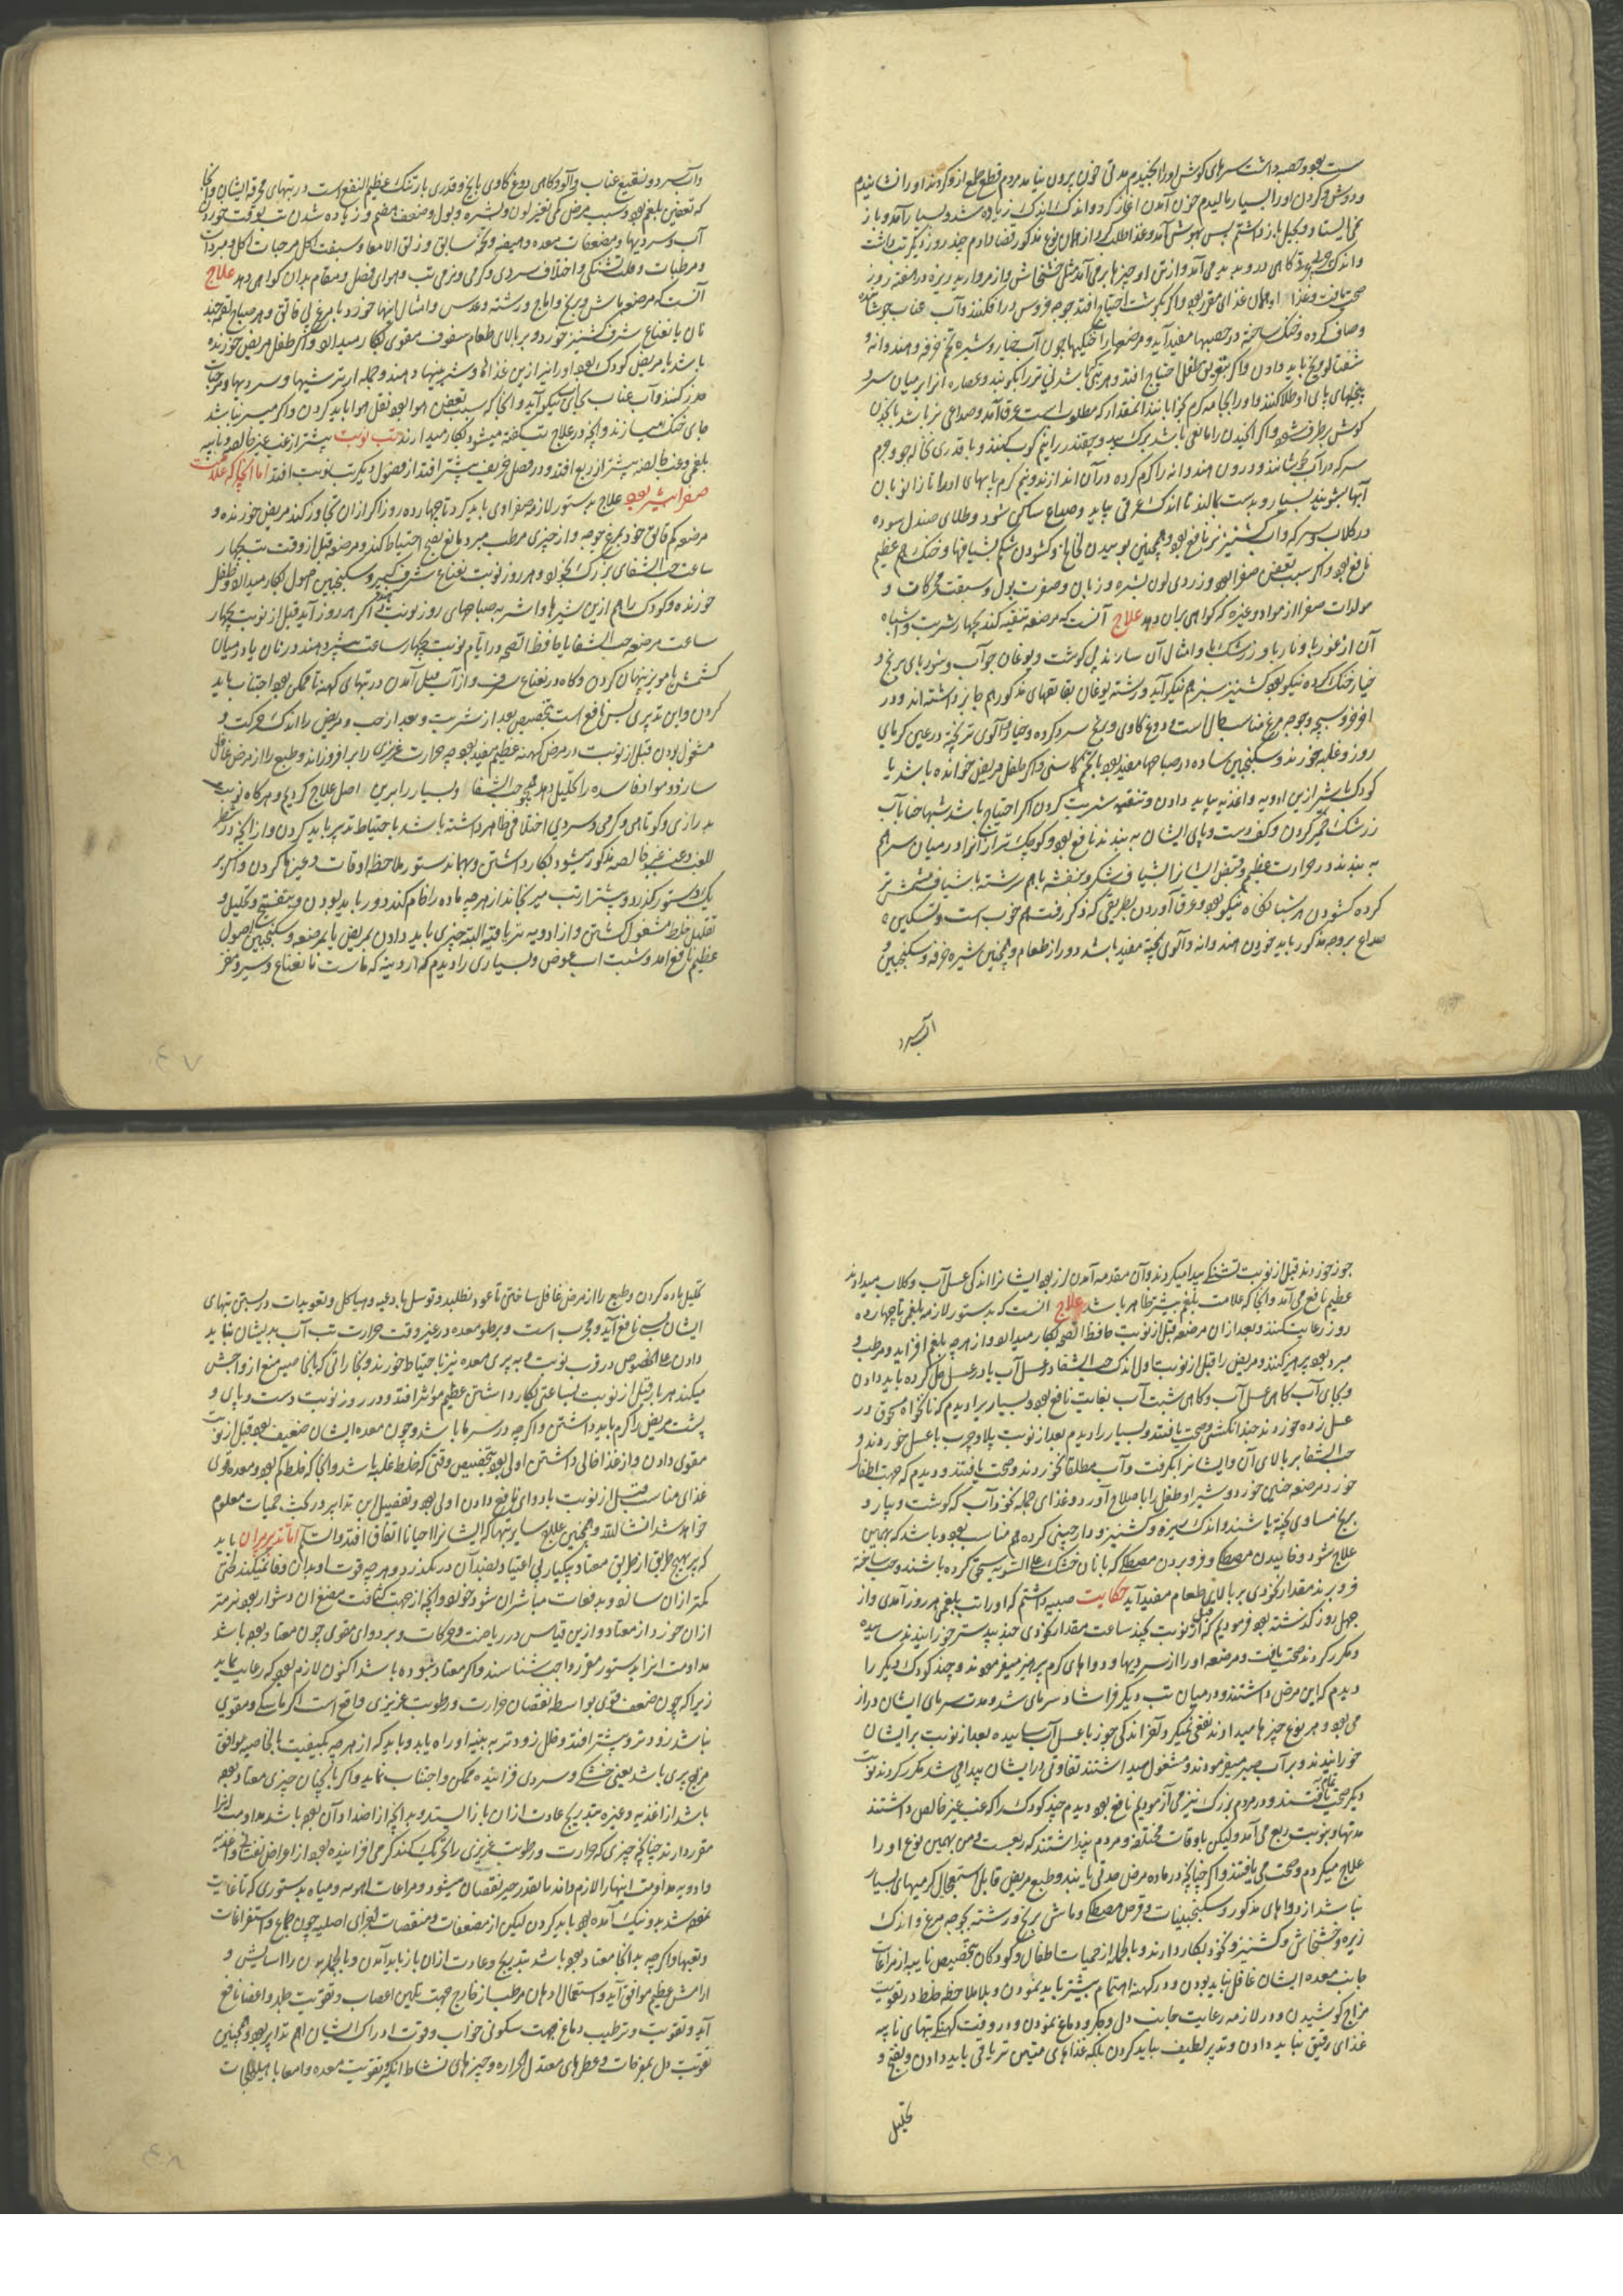 سبت بود و حصبه داشت سرهای گوش او را کفیدم مدتی خون برون نیامد مردم قطع طمع ازو کردند او را نشانیدم
و دوش و گردن او را بسیار مالیدم خون آمدن آغاز کرد و اندک اندک زیاده شد و بسیار آمد و باز
نمی ایستاد و بحیل باز داشتم پس بهوش آمد و غذا طلب کرد از همان نوع مذکور غذا دادم چند روز دیگر تب داشت
و اندک گاهی درو پدید می آمد و از تن او چیزها بر می آمد مثل خشخاش و از مروارید ریزه در هفته روز
صحت یافت و غذا او همان غذای مقرر بود و اگر بگوشت احتیاج افتد جوجه خروس در افکنند و آب عناب جوشانیده
و صاف کرده و خنک ساخته در حصبها مفید آید و مرضعه را خنکیها چون آب خیار و شیره تخم خرفه و هندوانه و
شفتالو یخ باید دادن و اگر بتعریق طفل احتیاج افتد
پنجهای پای او طلا کنند و او را بجامه گرم بخوابانند آنمقدار که مطلوب است عرق آمد و صداعی نیز باشد با خون
گوش برطرف شود و اگر کفیدن را مانعی باشد برگ بید و چقندر را نیم کوب کنند و با قدری نخاله جو و هم
سرکه در آب جوشانند و درون هندوانه را گرم کرده در آن اندازند و نیم گرم پایهای او را تا زانو بان
آبها بشویند بسیار و بدست بمالند تا اندک عرقی بیاید و صداع ساکن شود و طلای صندل سوده
در گلاب و سرکه و آب کشنیز تر نافع بود و همچنین بوییدن لخلخها و گشودن شکم بشیافها و خنک هم عظیم
نافع بود و اگر سبب تعفن صفرا بود و زردی لون بشره و زبان و صفرت بول و سبقت محرکات و
مولدات صفرا از مواد و غیره که گواهی بران دهد علاج آنست که مرضعه تنقیه کند بچهار شربت و اشباه
آن از غورها و ناربا و زرشک با و امثال آن سازند بی گوشت و یوغان جو آب و شوربای برنج و
خیار خنک کرده نیکو بود کشنیز سبز هم نیکو آید و رشته یوغان بقاتقهای مذکور هم جایز داشته اند و در
افروسیجه و جوجه مرغ مناسب حال است و دوغ گاوی و یخ سرد کرده و خیار و آلوی تر پخته در عین گرمای
روز و غلبه خورند و سکنجبین ساده در صباحها مفید بود با تخم کاسنی و اگر طفل مریض خوانده باشد یا
کودک باشد ازین ادویه و اغذیه بباید دادن و تنقیه شربت کردن اگر احتیاج باشد شبها حنا بآب
زرشک خمیر کردن و کف دست و پای ایشان به بندند نافع بود و کوچک تر از آنرا در میان سر هم
به بندند در حرارت عظیم و قبض ایشانرا شیاف شکر و بنفشه باهم سرشته یا شیاف مشمش تر
کرده گشودن هر شبانگاه نیکو بود و عرق آوردن بطریقی که ذکر رفت هم خوب است و تسکین
صداع بر وجه مذکور باید خوردن هندوانه و آلوی پخته مفید باشد دور از طعام و همچنین شیره خرفه و سکنجبین
آب سرد
و آب سرد و نقیع عناب و آلو و کاهی دوغ گاوی با یخ و قدری بارتنگ عظیم النفع است در تبهای محرقه ایشان و آنجا
که تعفن بلغم بود و سبب مرض کمی تغیر لون و بشره و بول و ضعف هضم و زیاده شدن تب بوقت خوردن
آب و سردیها و مضعفات معده و هیضه و تخمه سابق و زلق الامعا و سبقت اکل مرخیات اکل و مبردات
و مرطبات و قلت تشنگی و اختلاف سردی و گرمی و نرمی تب و هوای فصل و مقام بدان گواهی دهد علاج
آنست که مرضعه ماش و برنج و اماج و رشته و عدس و امثال اینها خورد با مرغ بی قاتق و هر صباح لقمه چند
نان با نعناع شرف کشنیز خورد و بر بالای طعام سفوف مقوی بکار میدارد و اگر طفل مریض خورنده
باشد یا مریض کودک بود او را نیز ازین غذاها و شیرینیها دهند و جمله از ترشیها و سردیها و مرخیات
حذر کنند و آب عناب بجای آب نیکو آید و آنجا که سبب تعفن هوا بود نقل هوا باید کردن و اگر میسر نباشد
جای خنک میسازند و آنچه در علاج تب گفته میشود بکار میدارند تب نوبت بیشتر از غب غیر خالصه و نایبه
بلغمی و غب خالصه بیشتر از ربع افتد و در فصل خریف بیشتر افتد از فصول دیگر تب نوبت افتد اما آنجا که علامت
صفرا بیشتر بود علاج بدستور لازمه صفراوی باید کرد تا چهارده روز اگر از آن تجاوز کند مریض خورنده و
مرضعه کم قاتق خود بمرغ جوجه و از چیزی مرطب مبرد مانع نضج احتیاط کند و مرضعه قبل از وقت تب بچهار
ساعت حب الشفای بزرگ بخورد و هر روز نوبت نعناع شرف کبیر و سکنجبین اصول بکار میدارد و طفل
خورنده و کودک را هم ازین شیرها و اشربه بصباحهای روز نوبت بدهند اگر هر روز آید قبل از نوبت بچهار
ساعت مرضعه حب الشفا یا حافظ الصحه و در ایام نوبت بچهار ساعت بیشتر دهند در نان یا در میان
کشمش یا مویز پنهان کردن و گاه در نعناع شرف و از آب میل آمدن در تبهای کهنه تا ممکن بود اجتناب باید
کردن و این تدبیری بس نافع است بتخصیص بعد از شربت و بعد از حب و مریض را اندک حرکت و
مشغول بودن قبل از نوبت در مرض کهنه عظیم مفید بود چه حرارت غریزی را بر افروزاند و طبع را از مرض غافل
سازد و مواد فاسده را تحلیل دهد همچو حب الشفا و بسیار را برین اصل علاج کردیم و هرگاه نوبت
بدرازی و کوتاهی و گرمی و سردی اختلافی ظاهر داشته باشد با احتیاط تدبیر باید کردن و از آنچه در شطر
الغب و غب غیر خالصه مذکور میشود بکار داشتن و بهمان دستور ملاحظه اوقات و غیرها کردن و اگر بر
یک دستور گذرد و بیشتر از تب میرنجاند از هر چه ماده را خام کند دور باید بودن و بتفتیح و تحلیل و
تقلیل خلط مشغول گشتن و از ادویه تریاقیه البته چیزی باید دادن بمریض یا بمرضعه و سکنجبین اصول
عظیم نافع آمد و شبت آب عوض و بسیاری را دیدم که اردینه که ماست نا نعناع و سیر و مغز
۴۷
جوز خوردند قبل از نوبت تشنگی پیدا میکردند و آن مقدمه آمدن لرز بود ایشانرا اندکی عسل آب و گلاب میدادند
عظیم نافع می آمد و آنجا که علامت بلغم بیشتر ظاهر باشد علاج آنست که بدستور لازمه بلغمی تا چهارده
روز رعایت کنند و بعد از آن مرضعه قبل از نوبت حافظ الصحه بکار میدارد و از هر چه بلغم افزاید و مرطب و
مبرد بود پرهیز کنند و مریض را قبل از نوبت اول اندک حب الشفا در عسل آب یا در عسل حل کرده باید دادن
و بجای آب گاهی عسل آب و گاهی شبت آب بغایت نافع بود و بسیار را دیدم که نانخواه مسحوق در
عسل زده خوردند چند انگشتی و صحت یافتند و بسیار را دیدم بعد از نوبت پلاو چرب با عسل خوردند و
حب الشفا بر بالای آن و ایشانرا بگرفت و آب مطلقا نخوردند و صحت یافتند و دیدم که جهت اطفال
خورد مرضعه چنین خورد و شیر او طفل را با صلاح آورد و غذای جمله نخودآب که گوشت و پیاز و
برنج مساوی پخته باشند و اندک زیره و کشنیز و دارچینی کرده هم مناسب بود و باشد که بهمین
علاج شود و خاییدن مصطکی و فرو بردن مصطکی که با نان خشک علی السویه سحق کرده باشند و حب ساخته
فرو برند مقدار نخودی بر بالای طعام مفید آید حکایت صبیه داشتم که او را تب بلغمی هر روز آمدی و از
چهل روز گذشته بود فرمودیم که قبل از نوبت بچند ساعت مقدار نخودی جند بیدستر خورانیدند ساییده
و مکرر کردند صحت یافت و مرضعه او را از سردیها و دواهای گرم پرهیز میفرمودند و چند کودک دیگر را
دیدم که این مرض داشتند و در میان تب دیگر فراشا و سرمای شد و مدت سرمای ایشان دراز
می بود و هر نوع چیزها میدادند نفعی نمیکرد و آخر اندکی جوز با عسل آب ساییده بعد از نوبت بر ایشان
خورانیدند و بر آب صبر میفرمودند و مشغول میداشتند تفاوتی در ایشان پیدا می شد مکرر کردند نوبت
دیگر صحت یافتند و در مردم بزرگ نیز می آزمودیم نافع بود دیدم چند کودک را که غب غیر خالص داشتند
مدتها و بنوبت ربع می آمد ولیکن باوقات مختلفه و مردم پنداشتند که ربعست و من بهمین نوع او را
علاج میکردم و صحت می یافتند و اگر چنانچه در ماده مرض صدقی یابند و طبع مریض قابل استعجال گرمیهای بسیار
نباشد از دواهای مذکور و سکنجبینات و قرص مصطکی و ماش برنج و رشته بجوجه مرغ و اندک
زیره و خشخاش و کشنیز و نخود بکار دارند و بالجمله از حمیات اطفال و کودکان بتخصیص نایبه از مراعات
جانب معده ایشان غافل نباید بودن و در کهنه اهتمام بیشتر باید نمودن و بلا ملاحظه خلط در تقویت
مزاج کوشیدن و در لازمه رعایت جانب دل و جگر و دماغ نمودن و در وقت کهنگی تبهای نایبه
غذای رقیق نباید دادن و تدبیر لطیف نباید کردن بلکه غذاهای متین تریاقی باید دادن و بنضج و
تحلیل
تحلیل ماده کردن و طبع را از مرض غافل ساختن تا عود نطلبد و توسل بادعیه و هیاکل و تعویذات در بستن تبهای
ایشان بسی نافع آید و مجرب است و بر خلو معده در غیر وقت حرارت تب آب بدیشان نباید
دادن علی الخصوص در قرب نوبت و به پری معده نیز باحتیاط خورند و بخاراتی که بالخاصیه منع از واحش
میکند هر بار قبل از نوبت بساعتی بکار داشتن عظیم مؤثر افتد و در روز نوبت دست و پای و
پشت مریض را گرم باید داشتن و اگر چه در سرما باشد و چون معده ایشان ضعیف بود قبل از نوبت
مقوی دادن و از غذا خالی داشتن اولی بود بتخصیص وقتی که خلط غلبه باشد و آنجا که خلط کم بود و معده قوی
غذای مناسب قبل از نوبت با دوای نافع دادن اولی بود و تفصیل این تدابیر در بحث حمیات معلوم
خواهد شد انشاالله و همچنین علاج سایر تبها که ایشانرا احیانا اتفاق افتد والسلم اما تدبیر پیران باید
که بر بهیچ طریق از طریق معتاد بیکبار بی اعتیاد بضد آن در نگذرد و هر چه قوت او بدان وفا نمیکند طفتی
کمتر از آن سازد و بدفعات مباشر آن شود و آنچه از جهت کثافت مضغ آن دشوار بود نرمتر
از آن خورد از معتاد و ازین قیاس در ریاضت و حرکات و بر دوای مقوی چون معتاد بوده باشد
مداومت آنرا بدستور مقرر واجب شناسند و اگر معتاد نبوده باشد اکنون لازم بود که رعایت نماید
زیرا که چون ضعف قوی بواسطه نقصان حرارت و رطوبت غریزی واقع است اگر ماسکی و مقوی
نباشد زودتر و بیشتر افتد و خلل زودتر به بنیه او راه یابد و باید که از هر چه بکیفیت یا بالخاصیه موافق
مزاج پیری باشد یعنی خشکی و سردی فزاینده ممکن و اجتناب نماید و اگر بآنچنان چیزی معتاد بود
باشد از اغذیه و غیره بتدریج عادت از آن باز ایستد و بر آنچه از اضداد آن بوده باشد مداومت آنرا
مقرر دارند چنانچه چیزی که حرارت و رطوبت غریزی را تحریک کند گرمی افزاینده بود از اعراض نفسانی و اغذیه
و ادویه مداومت اینها را لازم داند تا بقدر جبر نقصان میشود و مراعات اهویه و میاه بدستوری که تا غایت
بدو و نیک آمده بود باید کردن لیکن از مضعفات و منقصات اجزای اصلیه چون جماع و استفراغات
و تعبها و اگر چه بدانجا معتاد بوده باشد بتدریج و عادت از آن باز باید آمدن و بالجمله بدن را آسایش و
آرامش عظیم موافق آید و استعمال ادهان مرطب از خارج جهت تلیین اعصاب و تقویت جلد و اعضا نافع
آید و تقویت و ترطیب دماغ جهت سکون خواب و قوت ادراک ایشان اهم تدابیر بود و همچنین
تقویت دل بمفرحات و عطرهای معتدل الحراره و چیزهای نشاط انگیز تقویت معده و امعا باهلیلجات
۴۸